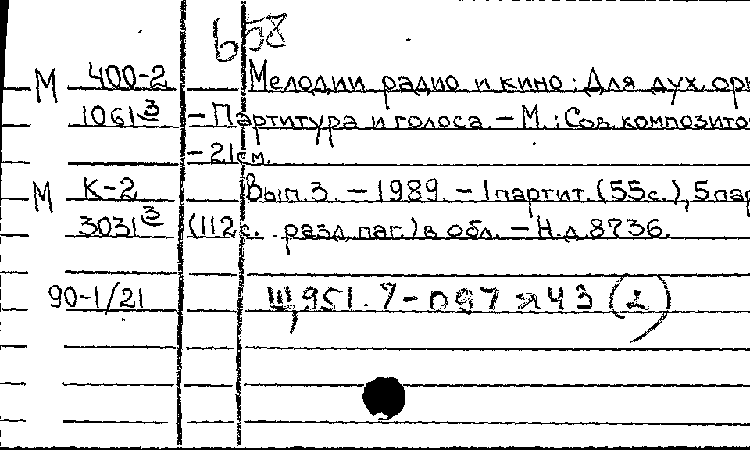 658
М 400-2 Мелодии радио и кино : Для дух. орк
1061 3 – Партитура и голоса. – М. : Сов. композито
– 21 см.
М К-2 Вып. 3. – 1989. – 1 партит. (55 с.), 5 пар
3031 3 (112 с. разд. паг.) в обл. – Н.д. 8736.
90-1/21 Щ951.7-097 я43 (2)